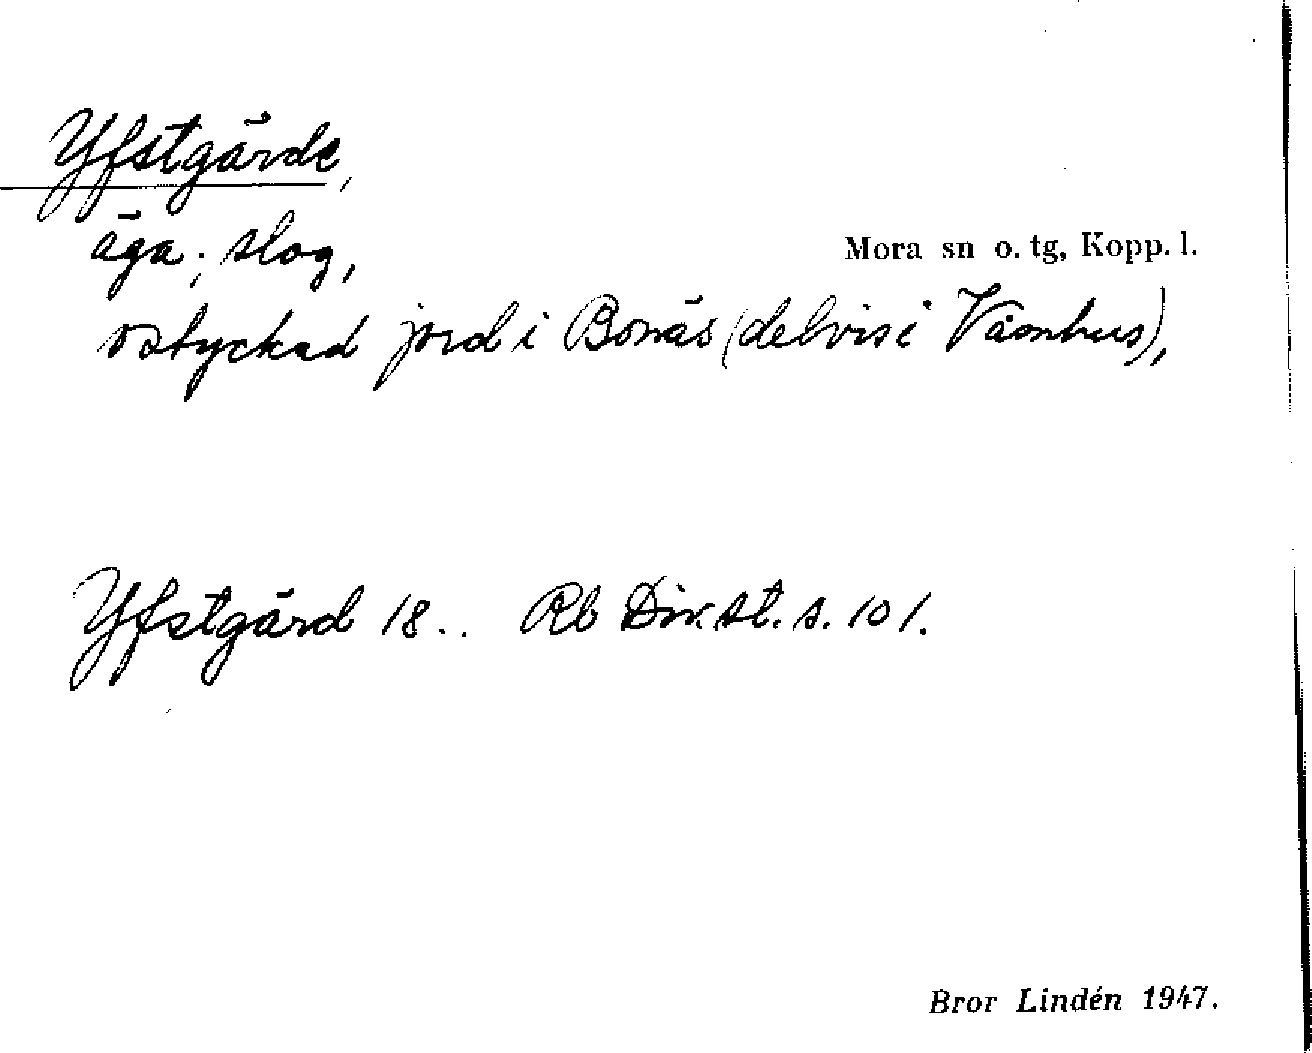 Yfstgärde,
äga; slog,
Mora sn o. tg, Kopp. l.
ostyckad jord i Bonäs (delvis i Våmhus),
Yfstgärd 18.. Rb Div. st. s. 101.
Bror Lindén 1947.